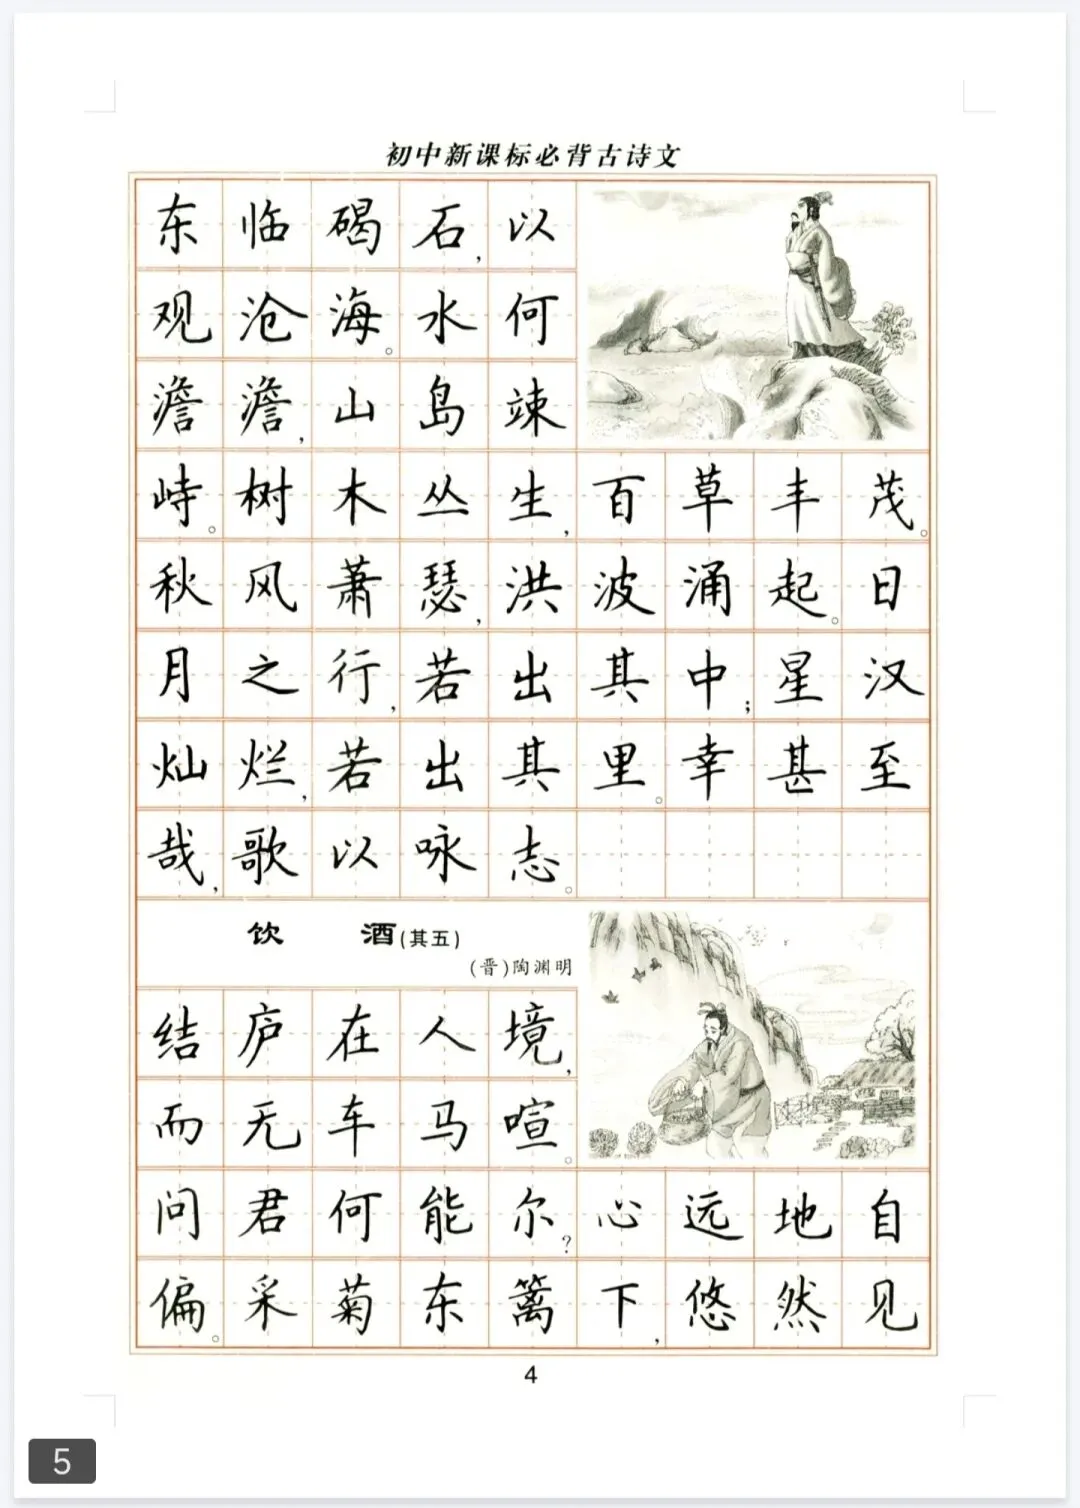 初中新课标必背古诗文
东临碣石,以
观沧海。水何
澹澹,山岛竦
峙。树木丛生,百草丰茂。
秋风萧瑟,洪波涌起。日
月之行,若出其中;星汉
灿烂,若出其里。幸甚至
哉,歌以咏志。
饮 酒(其五)
(晋)陶渊明
结庐在人境,
而无车马喧。
问君何能尔?心远地自
偏。采菊东篱下,悠然见
4
5